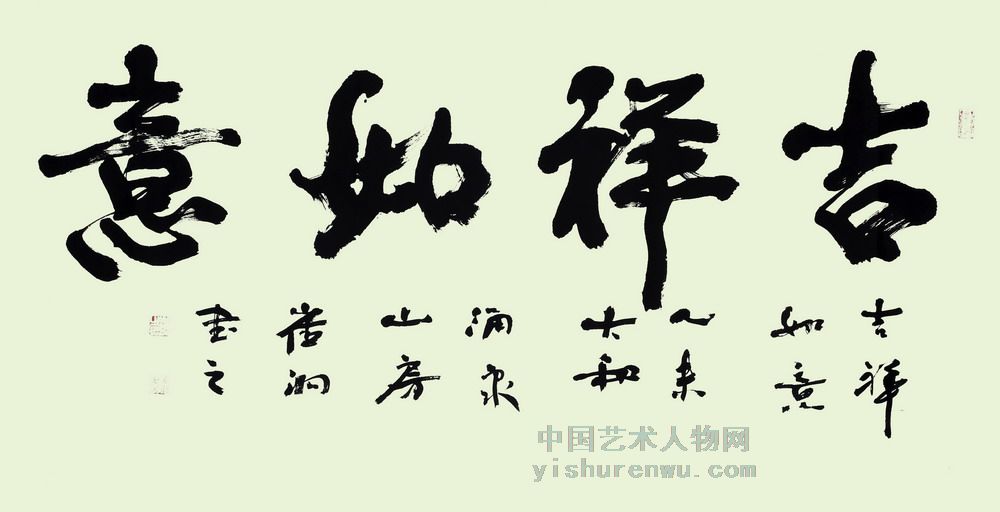 吉祥如意
吉祥
如意
乙未
涌泉
山房
書之
中国艺术人物网
yishurenwu.com